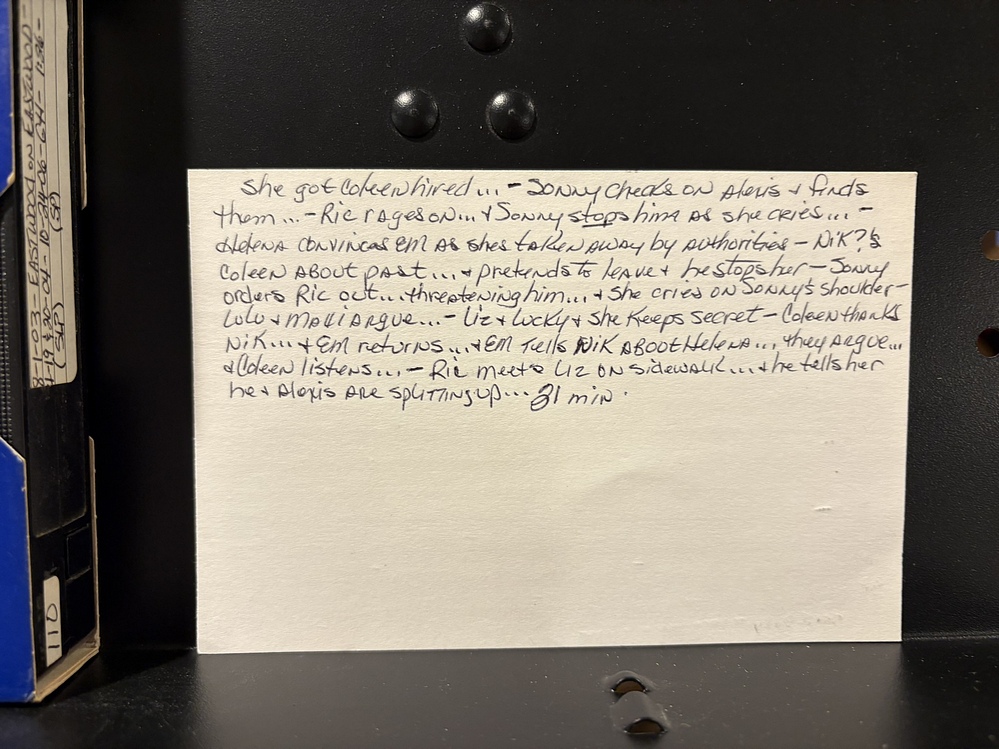 She got Coleen hired... - Sonny checks on Alexis & finds
them... - Ric rages on... & Sonny stops him as she cries... -
Helena convinces Em as shes taken away by authorities - Nik ?'s
Coleen about past... & pretends to leave & he stops her - Sonny
orders Ric out... threatening him... & she cries on Sonny's shoulder -
Lulu & Maxi argue... - Liz & Lucky & she keeps secret - Coleen thanks
Nik... & Em returns... & Em tells Nik about Helena... they argue...
& Coleen listens... - Ric meets Liz on sidewalk... & he tells her
he & Alexis are splitting up... 31 min.
1-03 - EASTWOOD ON EASTWOOD -
(SLP)
(SP)
110